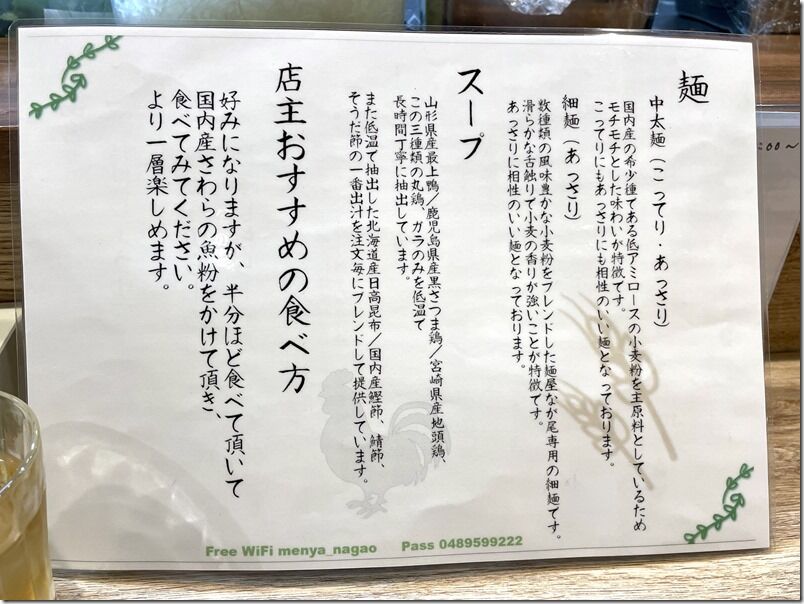 麺
中太麺（こってり・あっさり）
国内産の希少種である低アミロースの小麦粉を主原料としているため
モチモチとした味わいが特徴です。
こってりにもあっさりにも相性のいい麺となっております。
細麺（あっさり）
数種類の風味豊かな小麦粉をブレンドした麺屋なが尾専用の細麺です。
滑らかな舌触りで小麦の香りが強いことが特徴です。
あっさりに相性のいい麺となっております。
スープ
山形県産最上鴨／鹿児島県産黒さつま鶏／宮崎県産地頭鶏、
この三種類の丸鶏、ガラのみを低温で
長時間丁寧に抽出しています。
また低温で抽出した北海道産日高昆布／国内産鰹節、鯖節、
そうだ節の一番出汁を注文毎にブレンドして提供しています。
店主おすすめの食べ方
好みになりますが、半分ほど食べて頂いて
国内産さわらの魚粉をかけて頂き、
食べてみてください。
より一層楽しめます。
Free WiFi menya_nagao Pass 0489599222
:00～